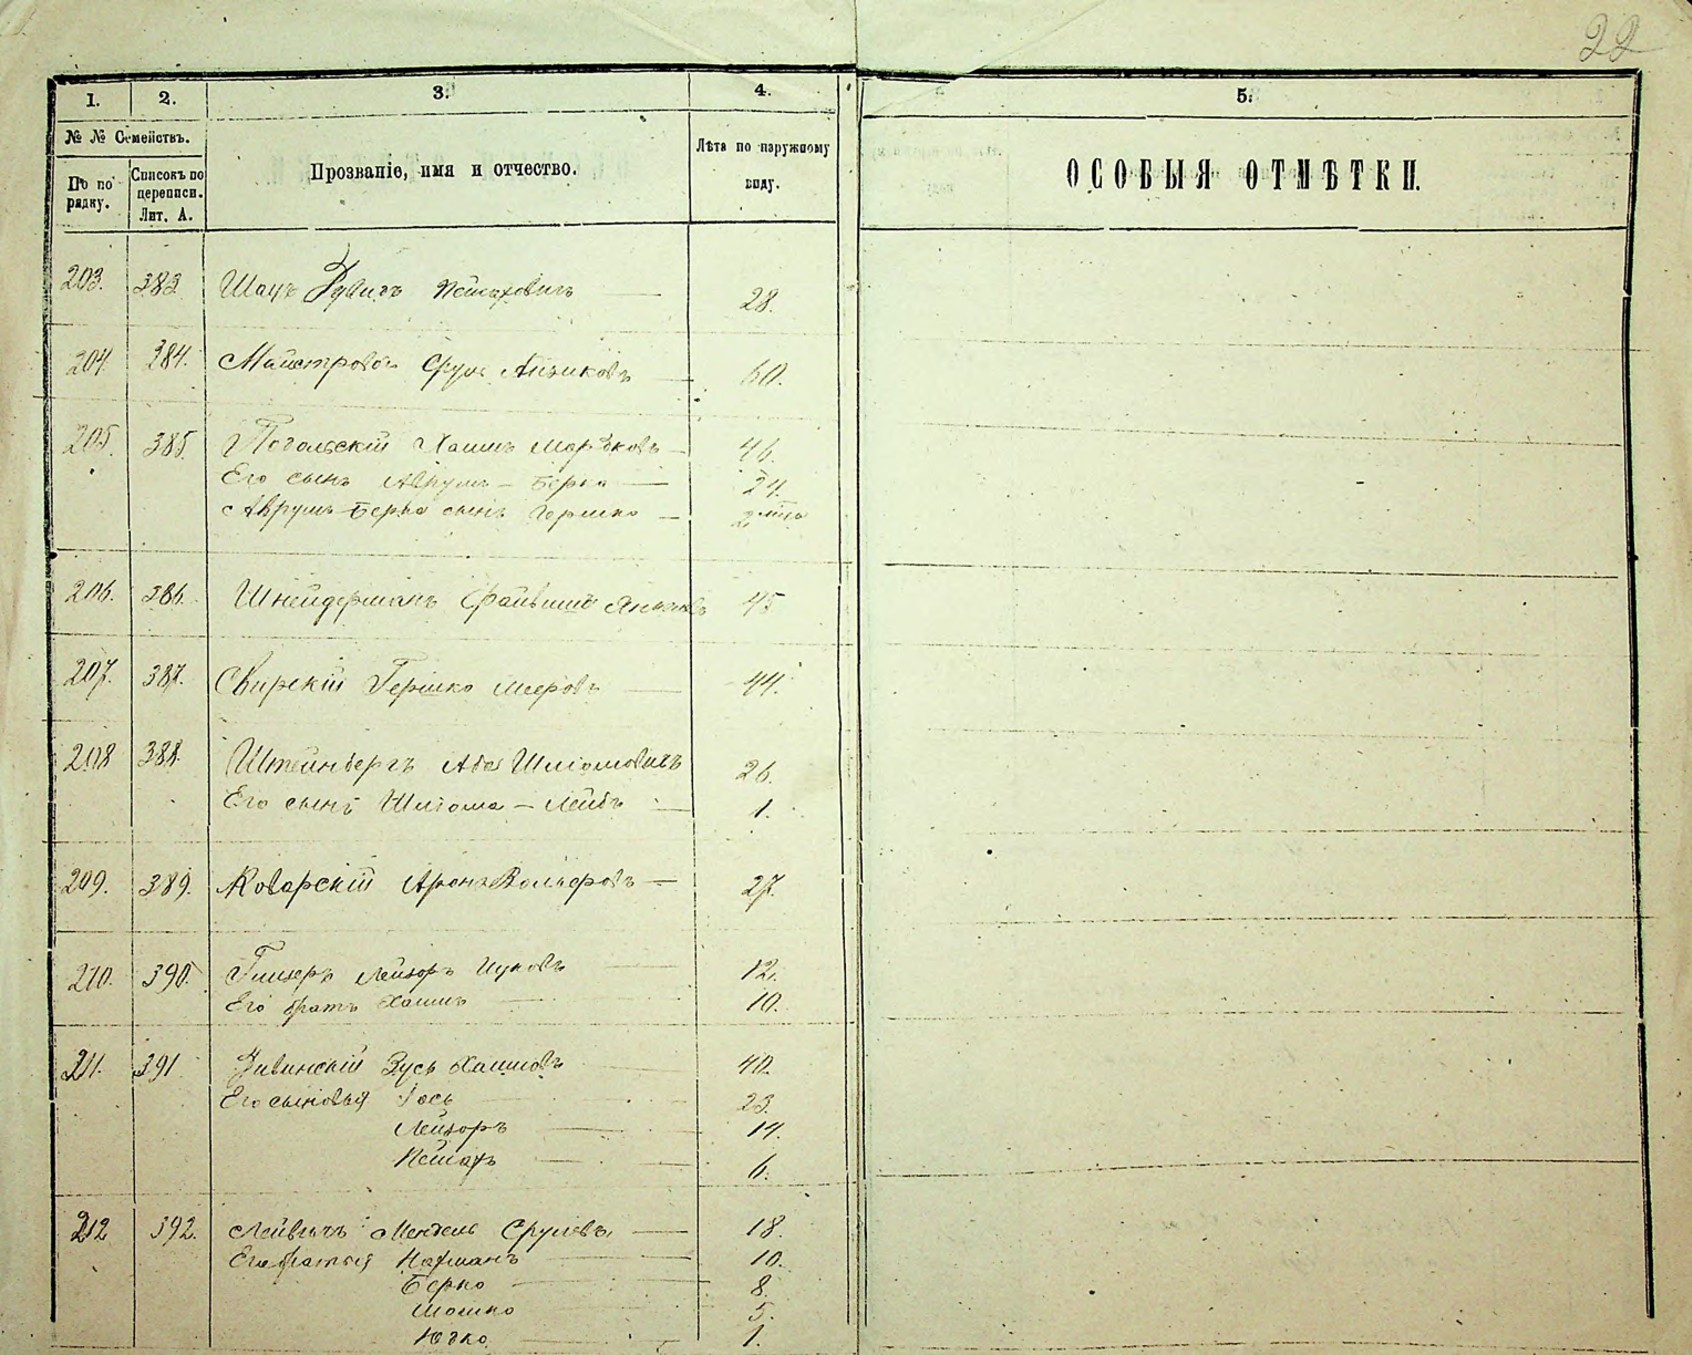 22
1. 2. 3. 4. 5.
№ № Семействъ.
По по рядку.
Списокъ по переписи. Лит. А.
Прозваніе, имя и отчество.
Лѣта по наружному виду.
ОСОБЫЯ ОТМѢТКИ.
203. 383. Шацъ Пейсаховичъ — 28.
204. 384. Майстровой Срул Айзиковъ — 60.
205. 385. Погольскій Хаимъ Марѣковъ — 46.
Его сынъ Аврумъ - Берко — 24.
Аврумъ-Берка сынъ Гершко — 2
206. 386. Шнейдерманъ Файвишъ Янкелевъ 45
207. 387. Свирскій Гершко Мееровъ — 44.
208 388. Штейнбергъ Аба Шліомовичъ 26.
Его сынъ Шліома - Лейбъ — 1.
209. 389. Коварскій Аронъ Вольфовъ — 27.
210. 390. Лейзоръ Ицковъ — 12.
Его братъ Хаимъ — 10.
211. 391 Зусь Хаимовъ — 40.
Его сыновья — 23.
Лейзоръ — 14.
Пейсахъ — 6.
212 392. Мендель Срулевъ — 18.
Его братья Нахманъ — 10.
Берко — 8.
Мошко — 5.
Юдко — 1.